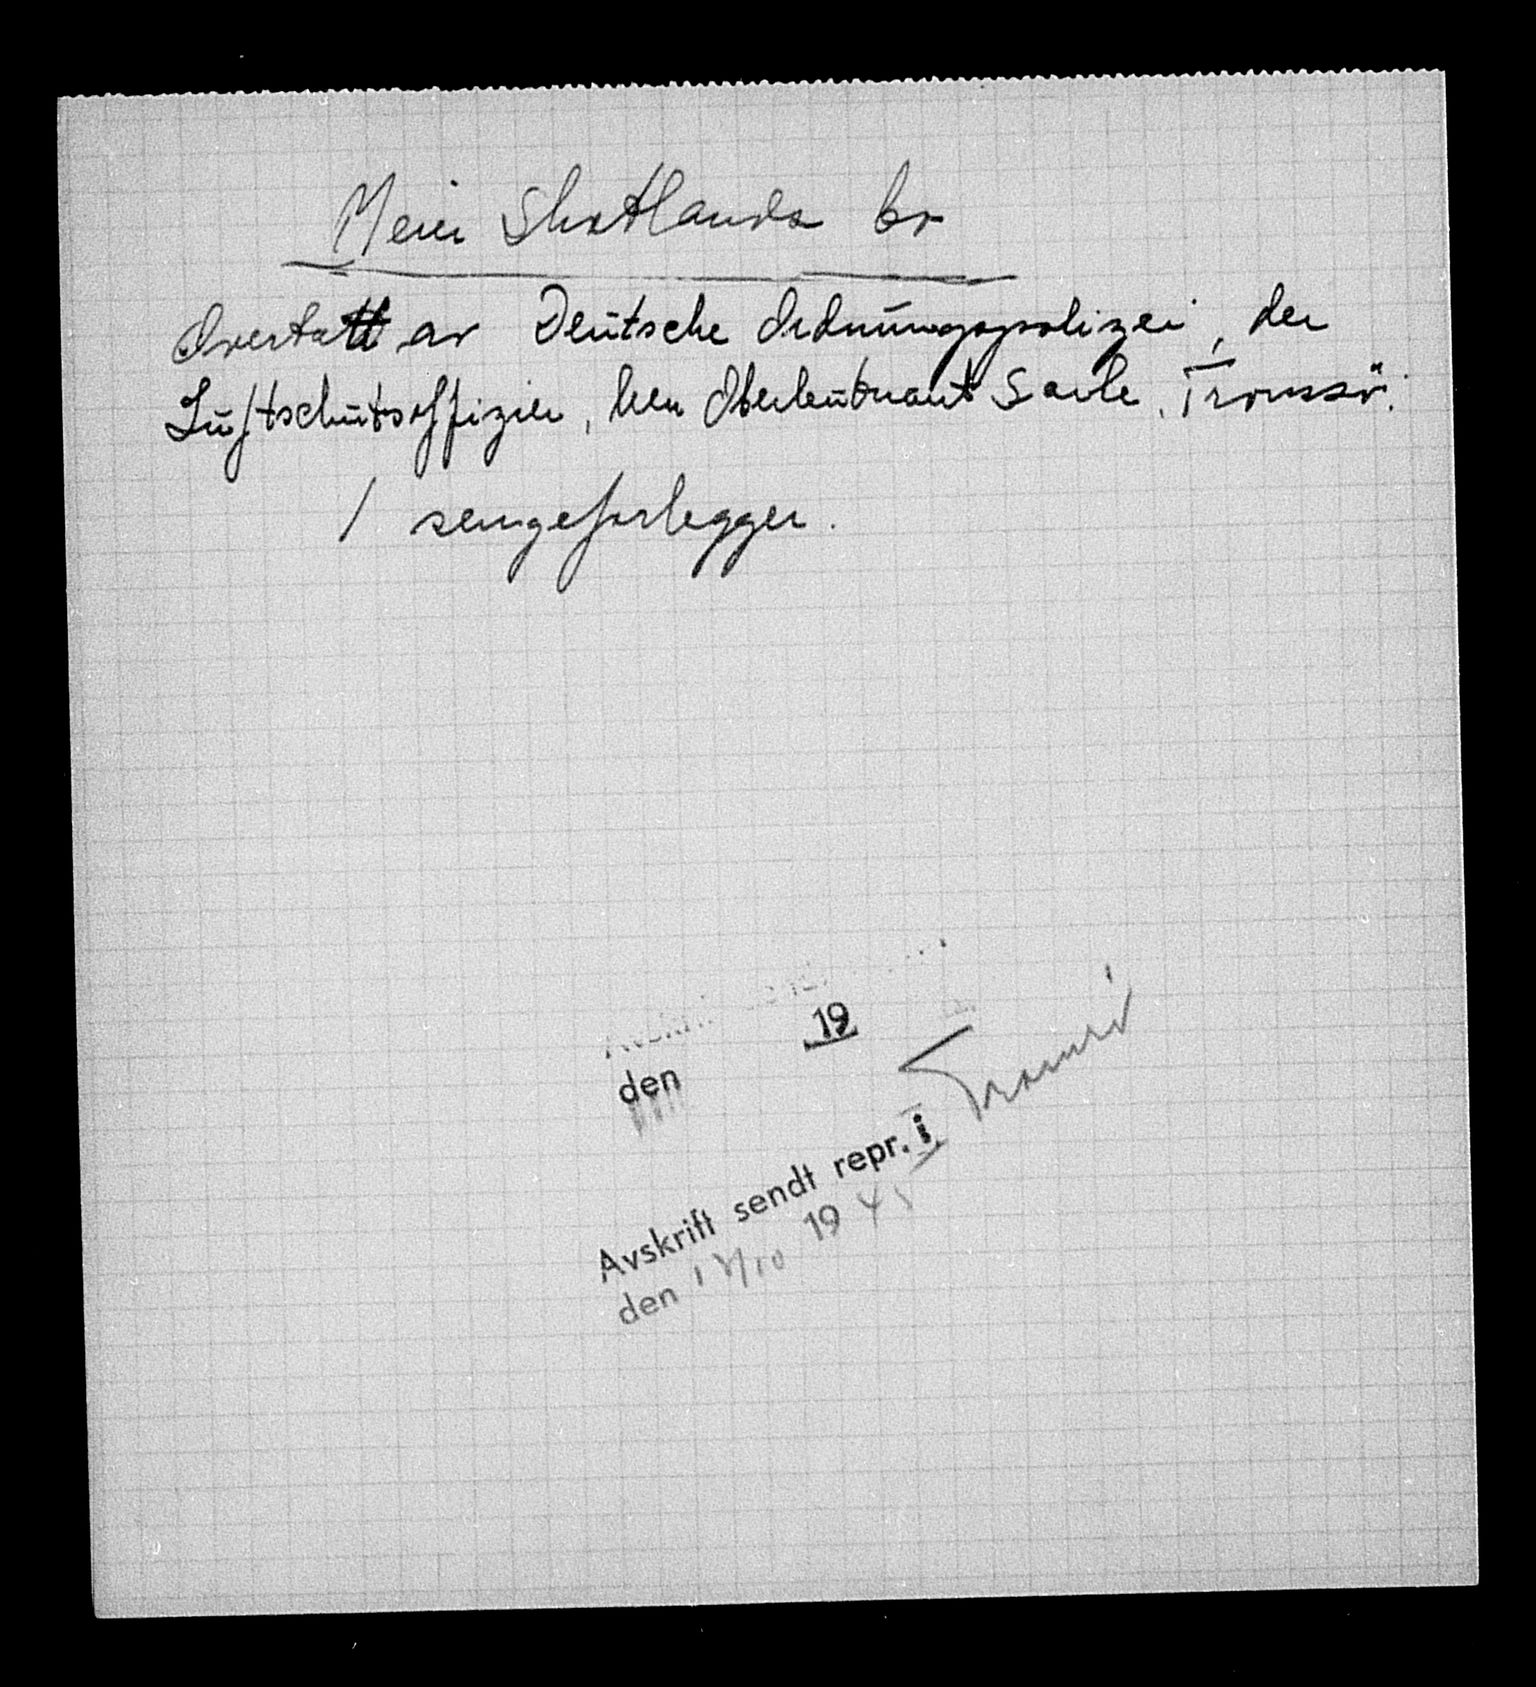 Meier Skotlands bo
Overtatt av Deütsche Ordnüngspolizei, der
Lüftschütsoffizier, herr Oberleütnant Sarle, Tromsö.
1 sengeforlegger.
Avskrift
den 19
Avskrift sendt repr. i Tromsö
den /10 1945